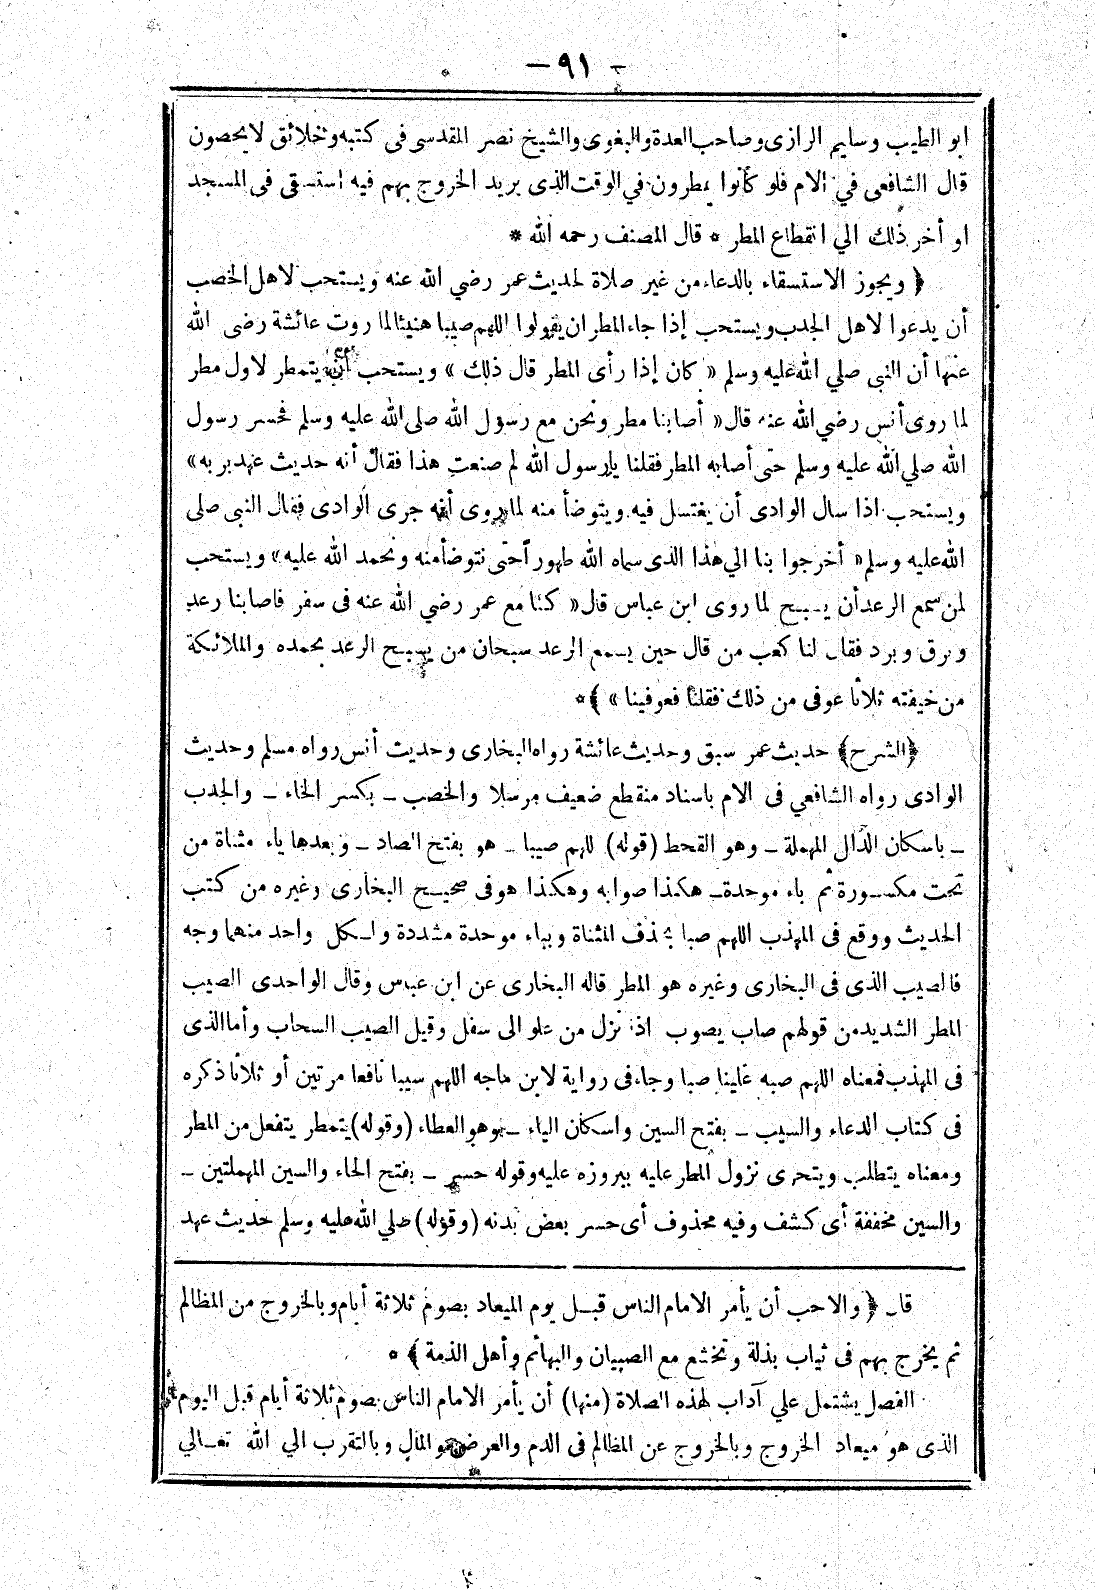 - ٩١ -
ابو الطيب وسليم الرازى وصاحب العدة والبغوى والشيخ نصر المقدسى فى كتبه وخلائق لا يحصون
قال الشافعى في الام فلو كانوا يمطرون في الوقت الذى يريد الخروج بهم فيه استسقى فى المسجد
او أخر ذلك الي انقطاع المطر * قال المصنف رحمه الله *
﴿ ويجوز الاستسقاء بالدعاء من غير صلاة لحديث عمر رضي الله عنه ويستحب لاهل الخصب
أن يدعوا لاهل الجدب ويستحب إذا جاء المطر ان يقولوا اللهم صيبا هنيئا لما روت عائشة رضى الله
عنها أن النبى صلي الله عليه وسلم « كان إذا رأى المطر قال ذلك » ويستحب أن يتمطر لاول مطر
لما روى أنس رضي الله عنه قال « أصابنا مطر ونحن مع رسول الله صلى الله عليه وسلم فحسر رسول
الله صلي الله عليه وسلم حتى أصابه المطر فقلنا يا رسول الله لم صنعت هذا فقال أنه حديث عهد بربه »
ويستحب اذا سال الوادى أن يغتسل فيه ويتوضأ منه لما روى أنه جرى الوادى فقال النبى صلى
الله عليه وسلم « أخرجوا بنا الي هذا الذى سماه الله طهوراً حتى نتوضأ منه ونحمد الله عليه » ويستحب
لمن سمع الرعد أن يسبح لما روى ابن عباس قال « كنا مع عمر رضي الله عنه فى سفر فاصابنا رعد
وبرق وبرد فقال لنا كعب من قال حين يسمع الرعد سبحان من يسبح الرعد بحمده والملائكة
من خيفته ثلاثا عوفى من ذلك فقلنا فعوفينا » ﴾ *
﴿ الشرح ﴾ حديث عمر سبق وحديث عائشة رواه البخارى وحديث أنس رواه مسلم وحديث
الوادى رواه الشافعي فى الام باسناد منقطع ضعيف مرسلا والخصب ـ بكسر الخاء ـ والجدب
ـ باسكان الدال المهملة ـ وهو القحط (قوله) اللهم صيبا ـ هو بفتح الصاد ـ وبعدها ياء مثناة من
تحت مكسورة ثم باء موحدة ـ هكذا صوابه وهكذا هو فى صحيح البخارى وغيره من كتب
الحديث ووقع فى المهذب اللهم صبا بحذف المثناة وبباء موحدة مشددة ولكل واحد منهما وجه
فالصيب الذى فى البخارى وغيره هو المطر قاله البخارى عن ابن عباس وقال الواحدى الصيب
المطر الشديد من قولهم صاب يصوب اذا نزل من علو الى سفل وقيل الصيب السحاب وأما الذى
فى المهذب فمعناه اللهم صبه علينا صبا وجاء فى رواية لابن ماجه اللهم سيبا نافعا مرتين أو ثلاثا ذكره
فى كتاب الدعاء والسيب ـ بفتح السين واسكان الياء ـ وهو العطاء (وقوله) يتمطر يتفعل من المطر
ومعناه يتطلب ويتحرى نزول المطر عليه ببروزه عليه وقوله حسر ـ بفتح الحاء والسين المهملتين ـ
والسين مخففة أى كشف وفيه محذوف أى حسر بعض بدنه (وقوله) صلي الله عليه وسلم حديث عهد
قال ﴿ والاحب أن يأمر الامام الناس قبل يوم الميعاد بصوم ثلاثة أيام وبالخروج من المظالم
ثم يخرج بهم فى ثياب بذلة وتخشع مع الصبيان والبهائم وأهل الذمة ﴾ *
الفصل يشتمل علي آداب لهذه الصلاة (منها) أن يأمر الامام الناس بصوم ثلاثة أيام قبل اليوم
الذى هو ميعاد الخروج وبالخروج عن المظالم فى الدم والعرض والمال وبالتقرب الي الله تعالي